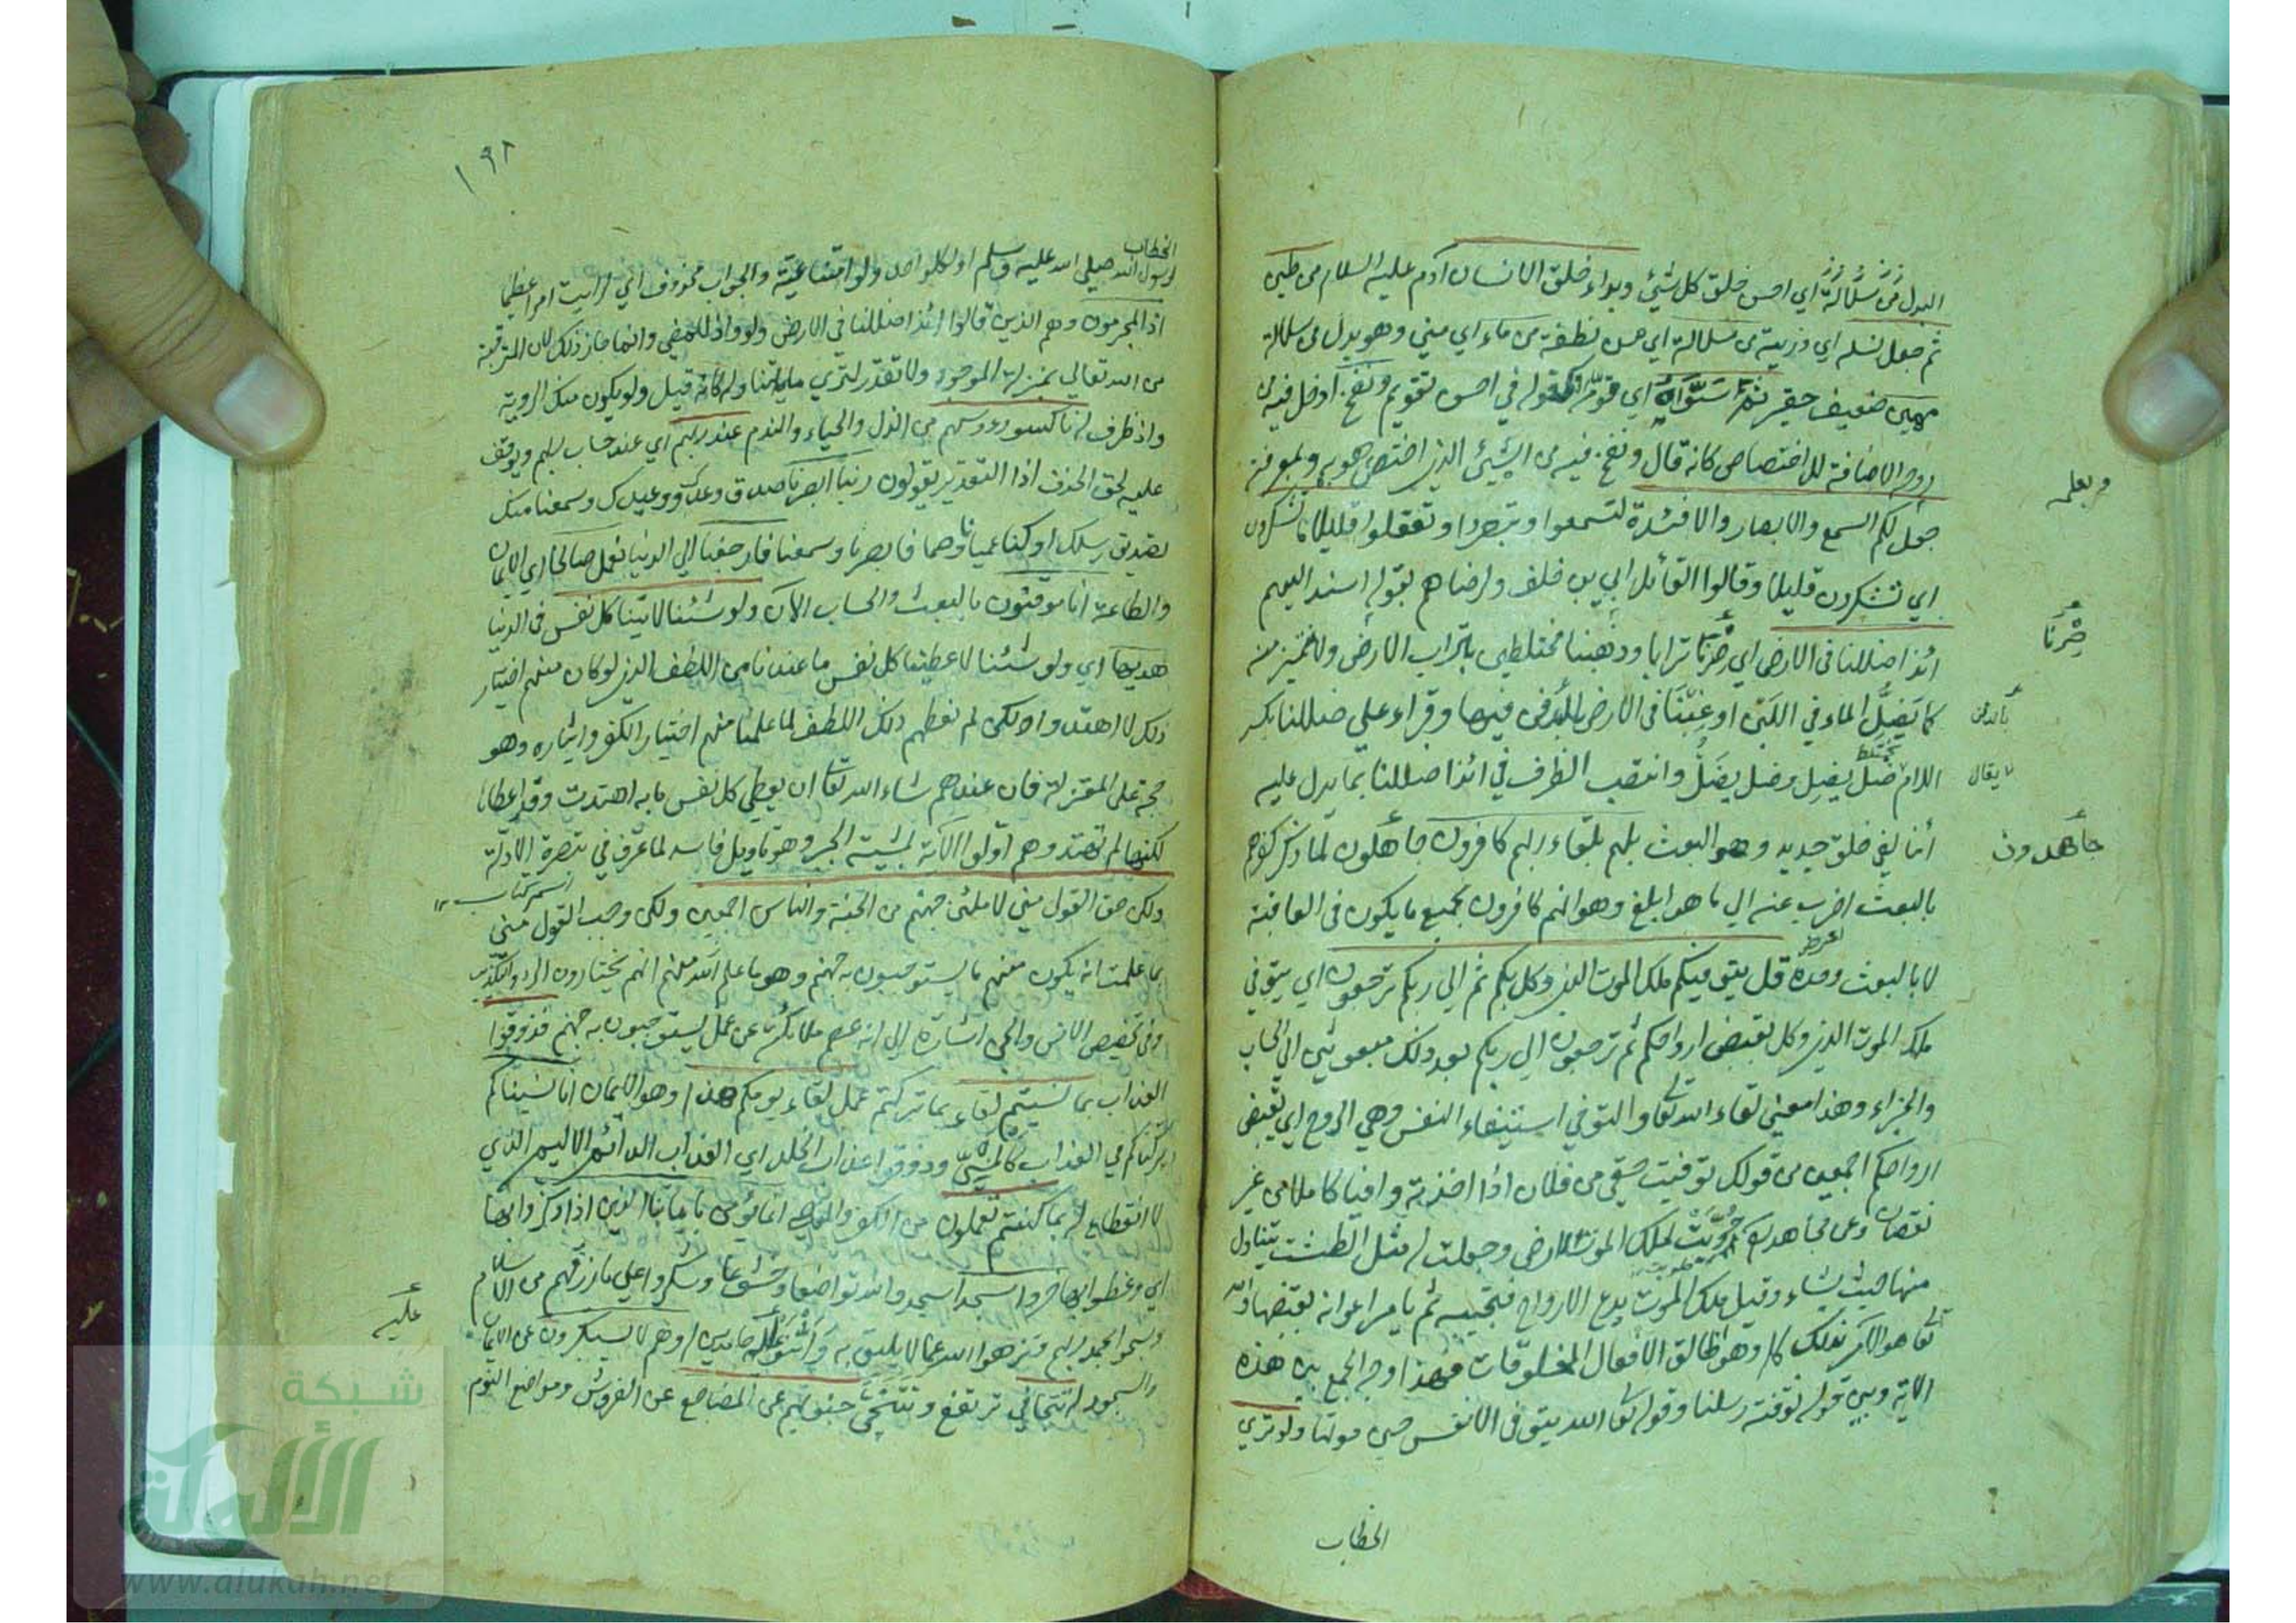 البدل من سلالة اي احسن خلق كل شئ وبداء خلق الانسان آدم عليه السلام من طين
ثم جعل نسله اي ذريته من سلالة اي من نطفة من ماء اي مني وهو بدل من سلالة
مهين ضعيف حقير ثم سَوَّاهُ اي قوّمه كقوله في احسن تقويم ونفخ ادخل فيه من
روحه الاضافة للاختصاص كانه قال ونفخ فيه من الشئ الذي اختص هو به وبمعرفته
وبعلمه
جعل لكم السمع والابصار والافئدة لتسمعوا وتبصروا وتعقلوا قليلا ما تشكرون
اي تشكرون قليلا وقالوا القائل ابي بن خلف ولرضاهم بقوله اسند اليهم
ائذا ضللنا في الارض اي صِرْنَا ترابا وذهبنا مختلطين بتراب الارض ولا نتميز منه
صِرْنَا
كما يَضِلُّ الماء في اللبن او غِبْنَا في الارض بالدفن فيها وقراء علي ضللنا بكسر
بالدفن
اللام ضل يضِل وضل يضَلُّ وانتصب الظرف في ائذا ضللنا بما يدل عليه
يقال
أئنا لفي خلق جديد وهو البعث بلهم بلقاء ربهم كافرون جاهلون لما ذكر كفرهم
جاهدون
بالبعث اضرب عنه الي ما هو ابلغ وهو انهم كافرون بجميع ما يكون في العاقبة
لا بالبعث وحده قل يتوفيكم ملك الموت الذي وكل بكم ثم الي ربكم ترجعون اي يتوفي
ملك الموت الذي وكل بقبض ارواحكم ثم ترجعون الي ربكم بعد ذلك مبعوثين الي الحساب
والجزاء وهذا معني لقاء الله تعا والتوفي استيفاء النفس وهي الروح اي يقبض
ارواحكم اجمعين من قولك توفيت حقي من فلان اذا اخذته وافيا كاملا من غير
نقصان وعن مجاهد حُوِيَتْ لملك الموت الارض وجعلت له مثل الطشت يتناول
منها حيث يشاء وقيل ملك الموت يدع الارواح فتجيبه ثم يامر اعوانه بقبضها والله
تعا هو الآمر بذلك كله وهو الخالق الافعال المخلوقات فهذا وجه الجمع بين هذه
الاية وبين قوله توفته رسلنا وقوله تعا الله يتوفى الانفس حين موتها ولو تري
الخطاب
١٩٨
الخطاب
لرسول الله صلي الله عليه وسلم او لكل واحد ولو امتناعية والجواب محذوف اي لرايت امرا عظيما
اذ المجرمون وهم الذين قالوا ائذا ضللنا في الارض ولو واذ للمضي وانما جاز ذلك لان المترقبة
من الله تعالي بمنزلة الموجود ولا تقدر لتري ما يتناوله كانه قيل ولو يكون منك الروية
واذ ظرف له ناكسوا رءوسهم من الذل والحياء والندم عند ربهم اي عند حساب ربهم ويوقف
عليه لحق الحذف اذ التقدير يقولون ربنا ابصرنا صدق وعدك ووعيدك وسمعنا منك
تصديق رسلك او كنا عميا وصما فابصرنا وسمعنا فارجعنا الي الدنيا نعمل صالحا اي الايمان
والطاعة انا موقنون بالبعث والحساب الآن ولو شئنا لاتينا كل نفس في الدنيا
هديها اي ولو شئنا لاعطينا كل نفس ما عندنا من اللطف الذي لو كان منهم اختيار
ذلك لاهتدوا لكن لم نعطهم ذلك اللطف لما علمنا منهم اختيار الكفر وايثاره وهو
حجة على المعتزلة فان عندهم شاء الله تعا ان يعطي كل نفس ما به اهتدت وقد اعطاها
لكنها لم تهتد وهم اولوا الآية بمشيئة الجبر وهو تاويل فاسد لما عرف في تبصرة الادلة
اسم كتاب
ولكن حق القول مني لاملئن جهنم من الجنة والناس اجمعين ولكن وجب القول مني
بما علمت انه يكون منهم ما يستوجبون به جهنم وهو ما علم الله منهم انهم يختارون الرد والتكذيب
وفي تخصيص الانس والجن اشارة الي انه عصم ملائكته عن عمل يستوجبون به جهنم فذوقوا
العذاب بما نسيتم لقاء بما تركتم عمل لقاء يومكم هذا وهو الايمان انا نسيناكم
تركناكم في العذاب كالمنسيّ وذوقوا عذاب الخلد اي العذاب الدائم الاليم الذي
لا انقطاع له بما كنتم تعملون من الكفر والمعاصي انما يؤمن باياتنا الذين اذا ذكروا بها
اي وعظوا بها خروا سجدا سجدوا لله تواضعا وخشوعا وشكروا علي ما رزقهم من الاسلام
وسبحوا بحمد ربهم ونزهوا الله عما لا يليق به واثنوا عليه حامدين له وهم لا يستكبرون عن الايمان
عليه
والسجود له تتجافي ترتفع وتتنحّى جنوبهم عن المضاجع عن الفروش ومواضع النوم
شبكة
الألوكة
www.alukah.net